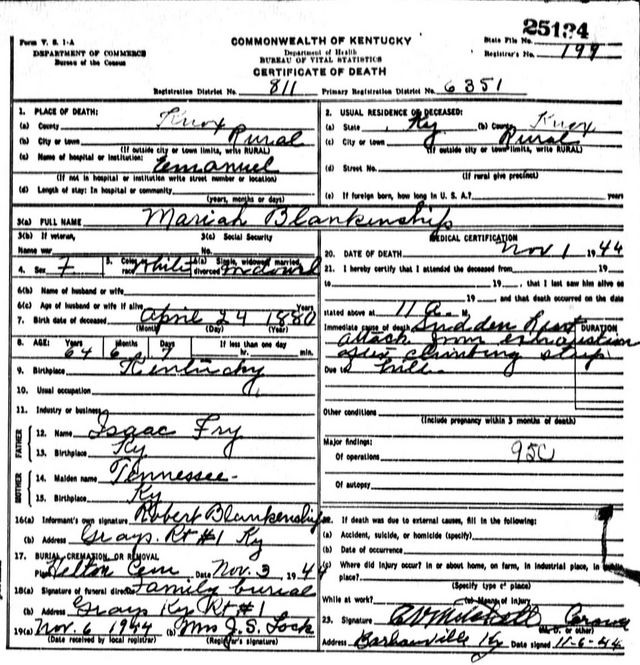 25134
Form V. S. 1-A
DEPARTMENT OF COMMERCE
Bureau of the Census
COMMONWEALTH OF KENTUCKY
Department of Health
BUREAU OF VITAL STATISTICS
CERTIFICATE OF DEATH
State File No.
Registrar's No. 199
Registration District No. 811 Primary Registration District No. 6351
1. PLACE OF DEATH:
(a) County Knox
(b) City or town Rural
(If outside city or town limits, write RURAL)
(c) Name of hospital or institution: Emanuel
(If not in hospital or institution write street number or location)
(d) Length of stay: In hospital or community
(years, months or days)
2. USUAL RESIDENCE OF DECEASED:
(a) State Ky (b) County Knox
(c) City or town Rural
(If outside city or town limits, write RURAL)
(d) Street No.
(If rural give precinct)
(e) If foreign born, how long in U. S. A.? years
3(a) FULL NAME Mariah Blankenship
3(b) If veteran, Name war
3(c) Social Security No.
4. Sex F 5. Color or race White 6(a) Single, widowed, married, divorced Widowed
6(b) Name of husband or wife
6(c) Age of husband or wife if alive Years
7. Birth date of deceased April 24 1880
(Month) (Day) (Year)
8. AGE: Years Months Days If less than one day
64 6 7 hr. min.
9. Birthplace Kentucky
10. Usual occupation
11. Industry or business
FATHER
12. Name Isaac Fry
13. Birthplace Ky
MOTHER
14. Maiden name Tennessee
15. Birthplace Ky
16(a) Informant's own signature Robert Blankenship
(b) Address Grays Rt #1 Ky
17. BURIAL, CREMATION, OR REMOVAL
Place Helton Cem Date Nov. 3, 1944
18(a) Signature of funeral director Family burial
(b) Address Grays Ky Rt #1
19(a) Nov. 6 1944 (b) Mrs J. S. Lock
(Date received by local registrar) (Registrar's signature)
MEDICAL CERTIFICATION
20. DATE OF DEATH Nov 1, 1944
21. I hereby certify that I attended the deceased from 19
to 19, that I last saw him alive on
19, and that death occurred on the date
stated above at 11 a. M
Immediate cause of death Sudden Heart DURATION
attack from exhaustion
after climbing steep
Due to hill
Other conditions
(Include pregnancy within 3 months of death)
Major findings:
Of operations 95C
Of autopsy
22. If death was due to external causes, fill in the following:
(a) Accident, suicide, or homicide (specify)
(b) Date of occurrence
(c) Where did injury occur? in or about home, on farm, in industrial place, in public place?
(Specify type of place)
While at work? (e) Means of Injury
23. Signature Coroner
(M. D. or other)
Address Barbourville Ky Date signed 11-6-44